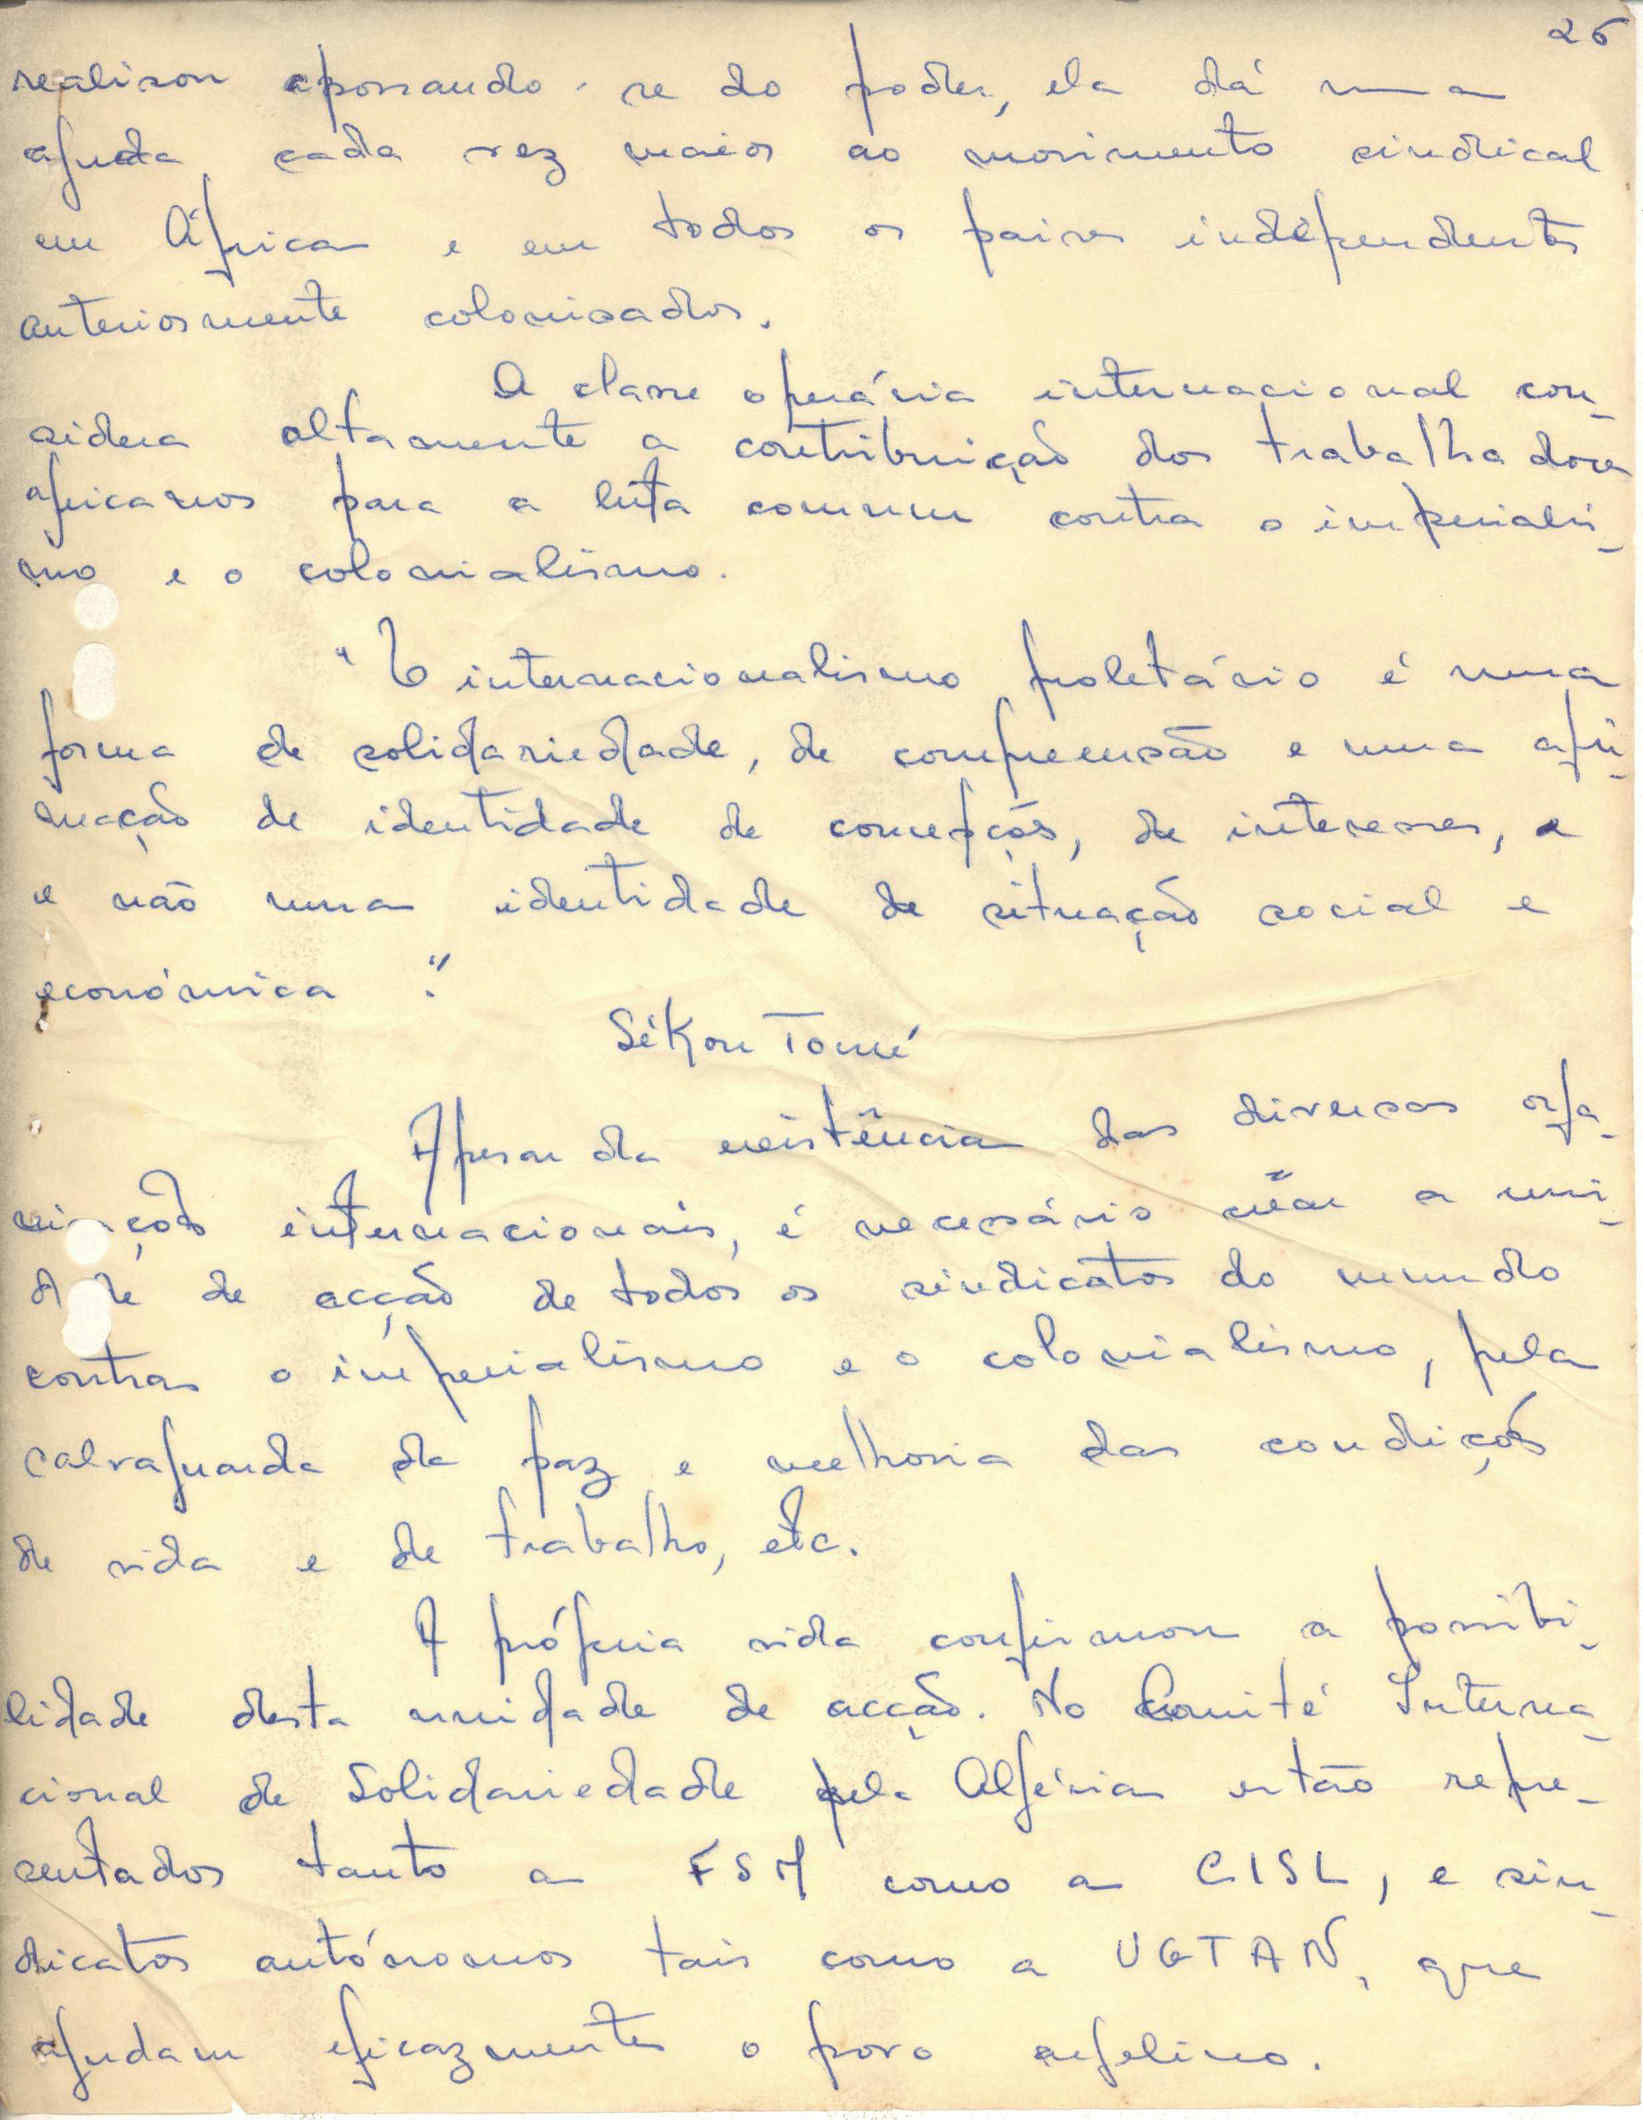 26
realizou apossando-se do poder, ela dá uma
ajuda cada vez maior ao movimento sindical
em África e em todos os países independentes
anteriormente colonizados.
A classe operária internacional con-
sidera altamente a contribuição dos trabalhadores
africanos para a luta comum contra o imperialis-
mo e o colonialismo.
"O internacionalismo proletário é uma
forma de solidariedade, de compreensão e uma afir-
mação de identidade de concepções, de interesses, e
e não uma identidade de situação social e
económica."
Sékou Touré
Apesar da existência das diversas orga-
nizações internacionais, é necessário criar a uni-
dade de acção de todos os sindicatos do mundo
contra o imperialismo e o colonialismo, pela
salvaguarda da paz e melhoria das condições
de vida e de trabalho, etc.
A própria vida confirmou a possibi-
lidade desta unidade de acção. No Comité Interna-
cional de Solidariedade pela Algéria estão repre-
sentados tanto a FSM como a CISL, e sin-
dicatos autónomos tais como a UGTAN, que
ajudam eficazmente o povo argelino.